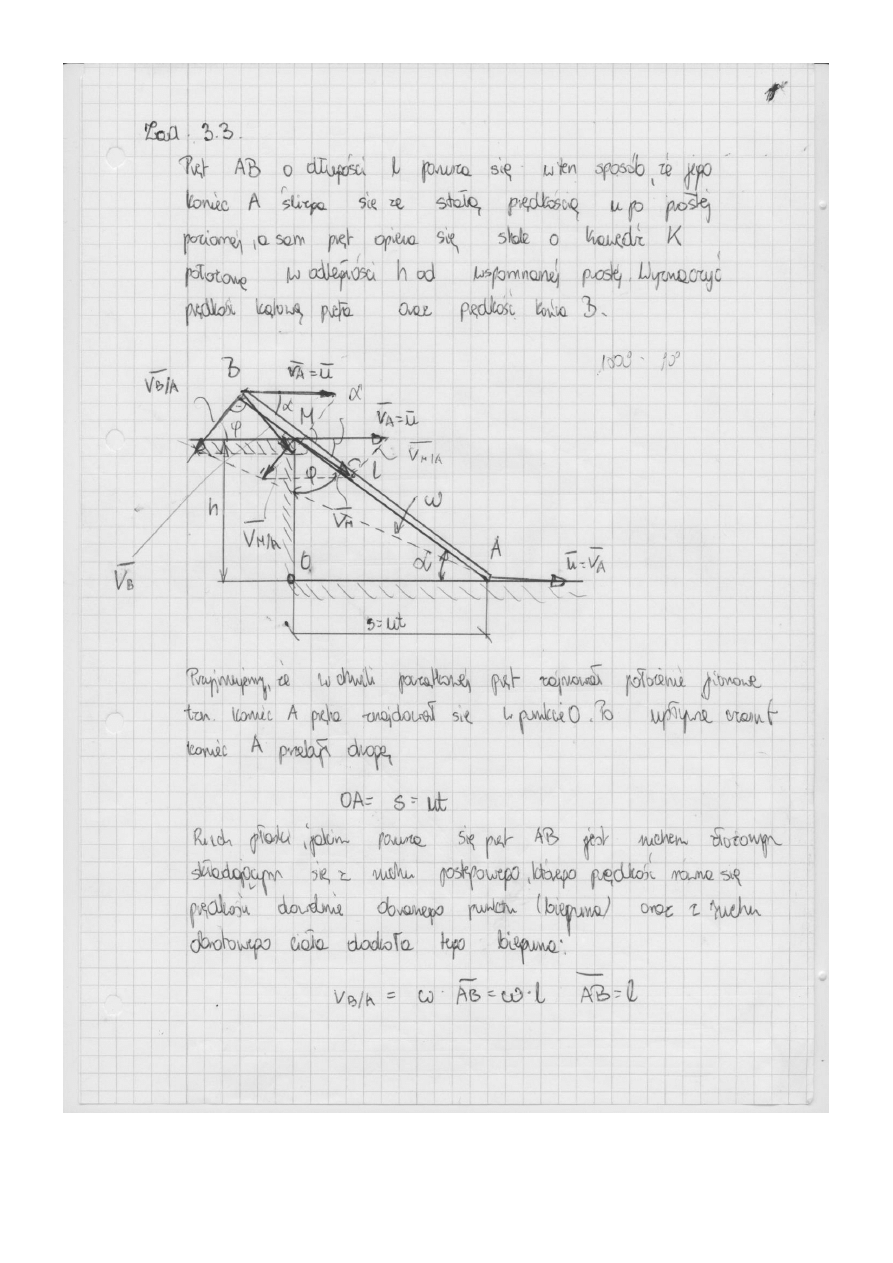 Zad. 3.3.
Pręt AB o długości l porusza się w ten sposób, że jego
koniec A ślizga się ze stałą prędkością u po prostej
poziomej, a sam pręt opiera się stale o krawędź K
położoną w odległości h od wspomnianej prostej. Wyznaczyć
prędkość kątową pręta oraz prędkość końca B.
B V̅A = u̅ α
V̅B/A
α M V̅A = u̅
φ V̅M/A
φ l
h V̅M ω
V̅M/A
V̅B O α A u̅ = V̅A
s = ut
Przyjmujemy, że w chwili początkowej pręt zajmował położenie pionowe
tzn. koniec A pręta znajdował się w punkcie O. Po upływie czasu t
koniec A przebył drogę
OA = s = ut
Ruch płaski, jakim porusza się pręt AB jest ruchem złożonym
składającym się z ruchu postępowego, którego prędkość równa się
prędkości dowolnie obranego punktu (bieguna) oraz z ruchu
obrotowego ciała dookoła tego bieguna:
VB/A = ω · A̅B̅ = ω · l A̅B̅ = l